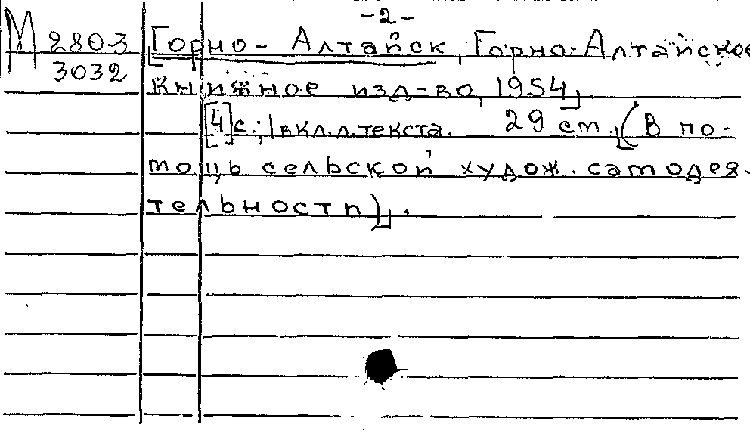 -2-
М 280-3 [Горно-Алтайск, Горно-Алтайское
3032 книжное изд-во, 1954].
[4]с.; 1 вкл.л.текста. 29 см. (В по-
мощь сельской худож. самодея-
тельности)].